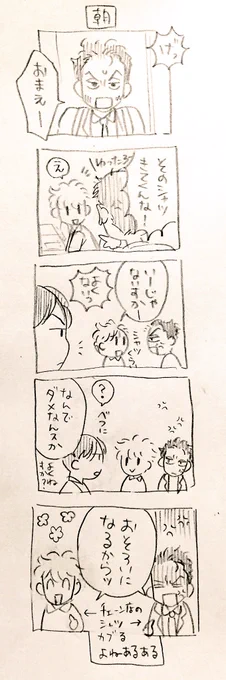 朝
げっ
おまえー
そのシャツ
きてくんな！
ゆったろ
え
いーじゃ
ないすかー
シャツ
ぐらい
よく
ないっ
？
べつに
なんで
ダメなんスか
おそろいに
なるからッ
←チェーン店の
シャツ→
カブる
よねあるある